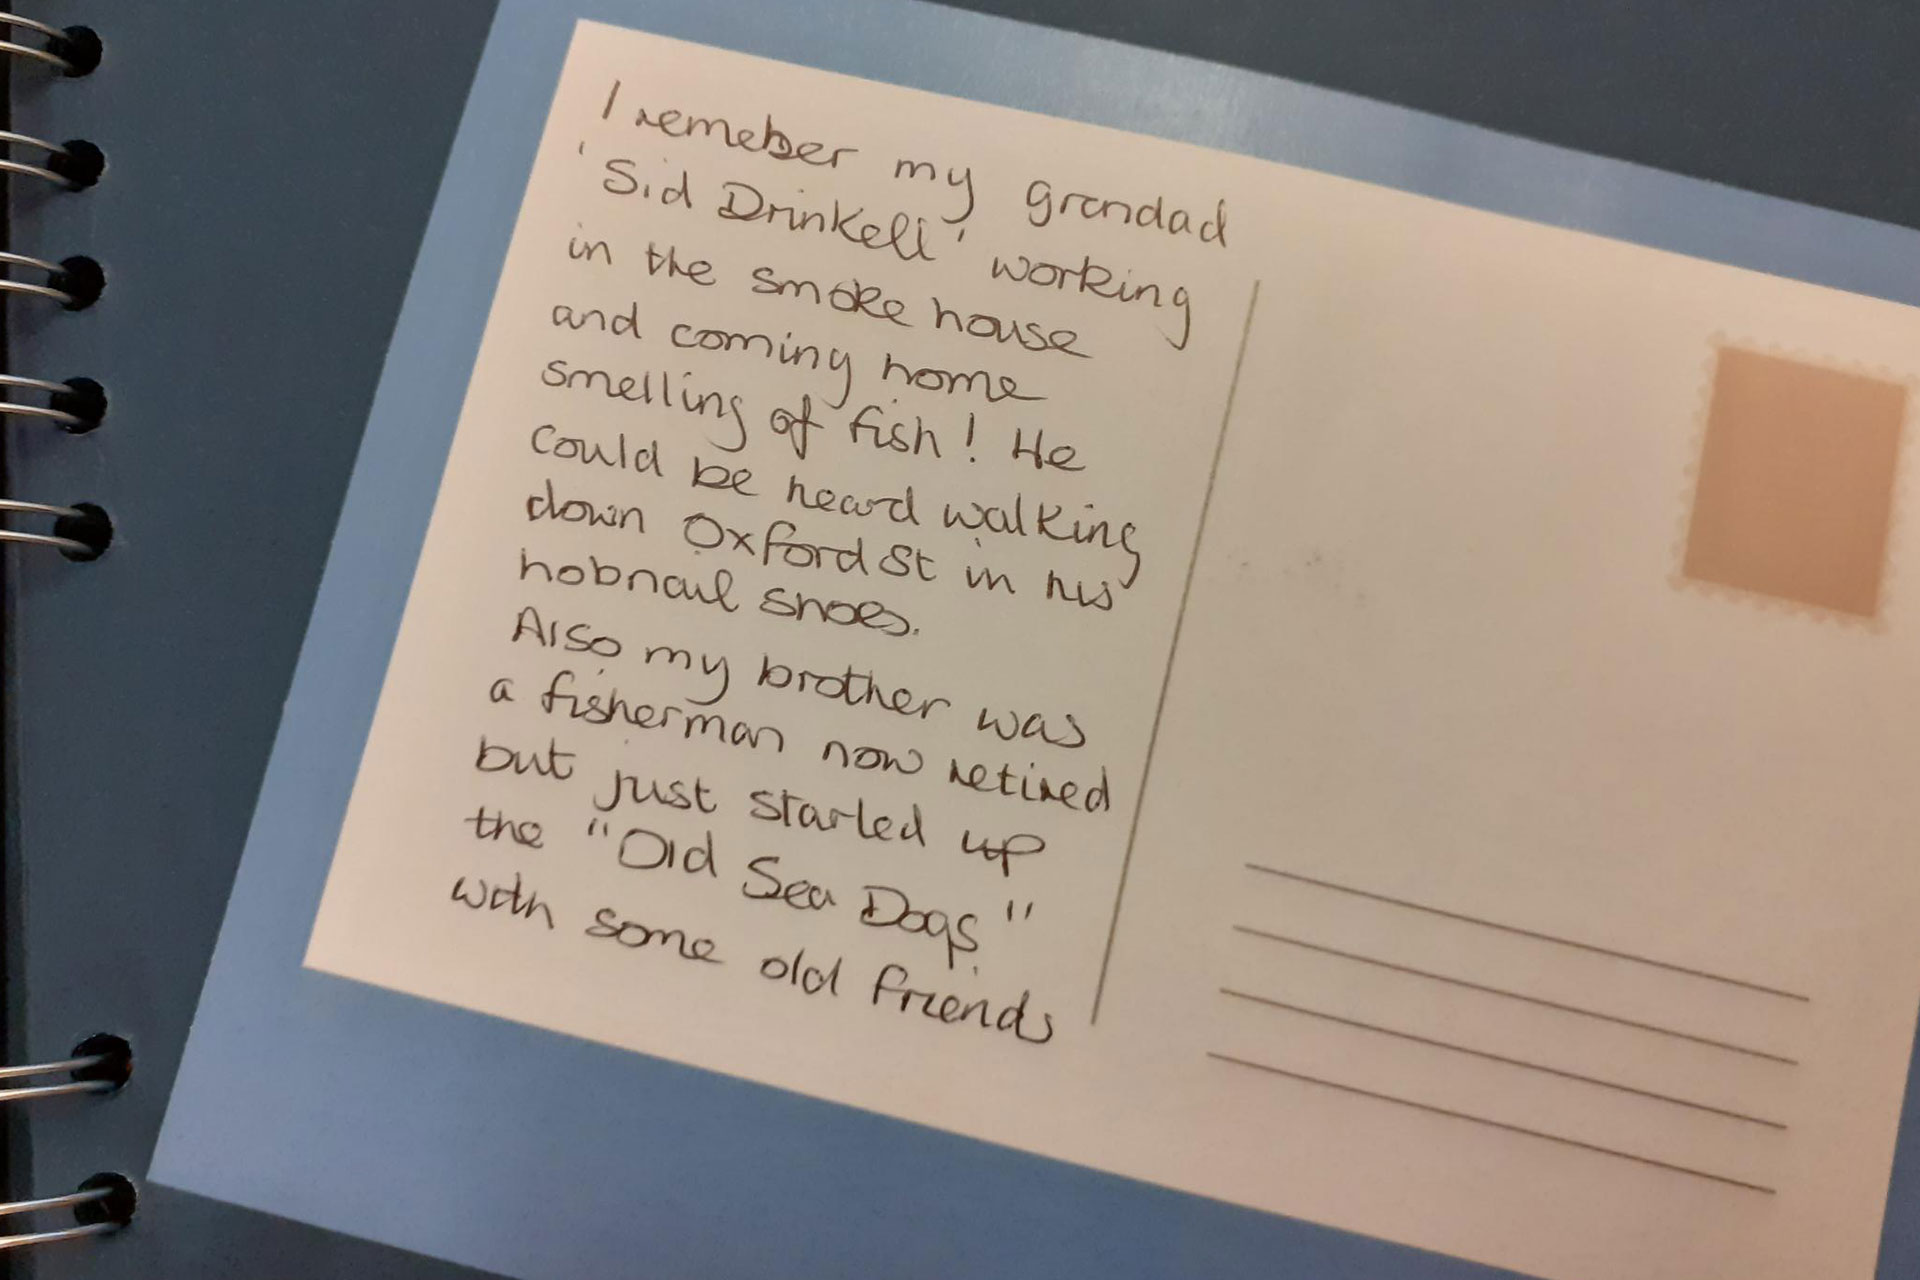 I remeber my grandad
'Sid Drinkell' working
in the smoke house
and coming home
smelling of fish! He
could be heard walking
down Oxford St in his
hobnail shoes.
Also my brother was
a fisherman now retired
but just started up
the "Old Sea Dogs"
with some old friends